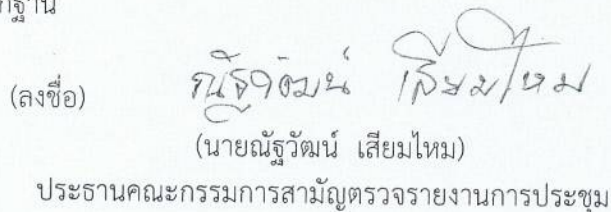 กฐาน
(ลงชื่อ) ณัฐวัฒน์ เสียมไหม
(นายณัฐวัฒน์ เสียมไหม)
ประธานคณะกรรมการสามัญตรวจรายงานการประชุม